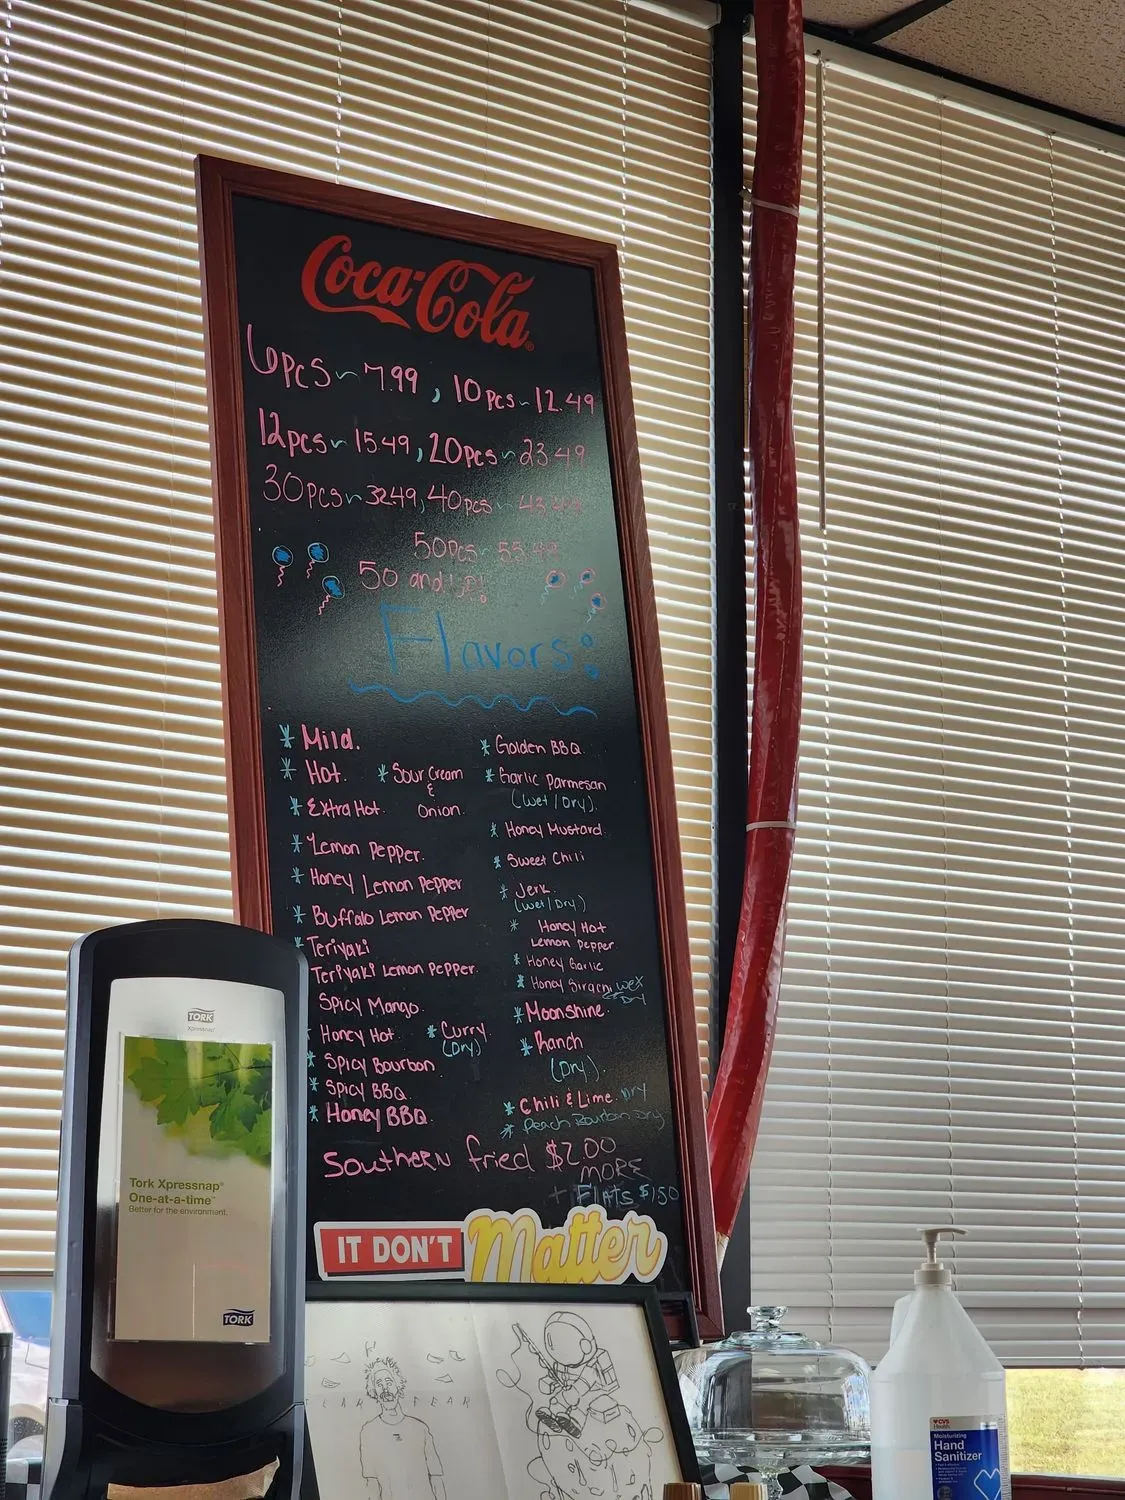 Coca-Cola
6pcs ~ 7.99, 10pcs ~ 12.49
12pcs ~ 15.49, 20pcs ~ 23.49
30pcs ~ 32.49, 40pcs ~
50pcs ~ 55.49
50 and
Flavors:
* Mild.
* Hot.
* Sour Cream
&
Onion.
* Extra Hot.
* Lemon Pepper.
* Honey Lemon Pepper
* Buffalo Lemon Pepper
* Teriyaki
Teriyaki Lemon Pepper.
Spicy Mango.
* Honey Hot
* Curry.
(Dry)
* Spicy Bourbon
* Spicy BBQ.
* Honey BBQ.
* Golden BBQ.
* Garlic Parmesan
(Wet/Dry).
* Honey Mustard.
* Sweet Chili
* Jerk.
(Wet/Dry.)
* Honey Hot
Lemon Pepper.
* Honey Garlic
* Honey Sirachi Wet
Dry
* Moonshine.
* Ranch
(Dry).
* Chili & Lime. Dry
* Peach Bourbon Dry
Southern fried $2.00
MORE
+ Flats $1.50
IT DON'T Matter
TORK
Xpressnap
Tork Xpressnap®
One-at-a-time™
Better for the environment.
TORK
FEAR
CVS
Health
Moisturizing
Hand
Sanitizer